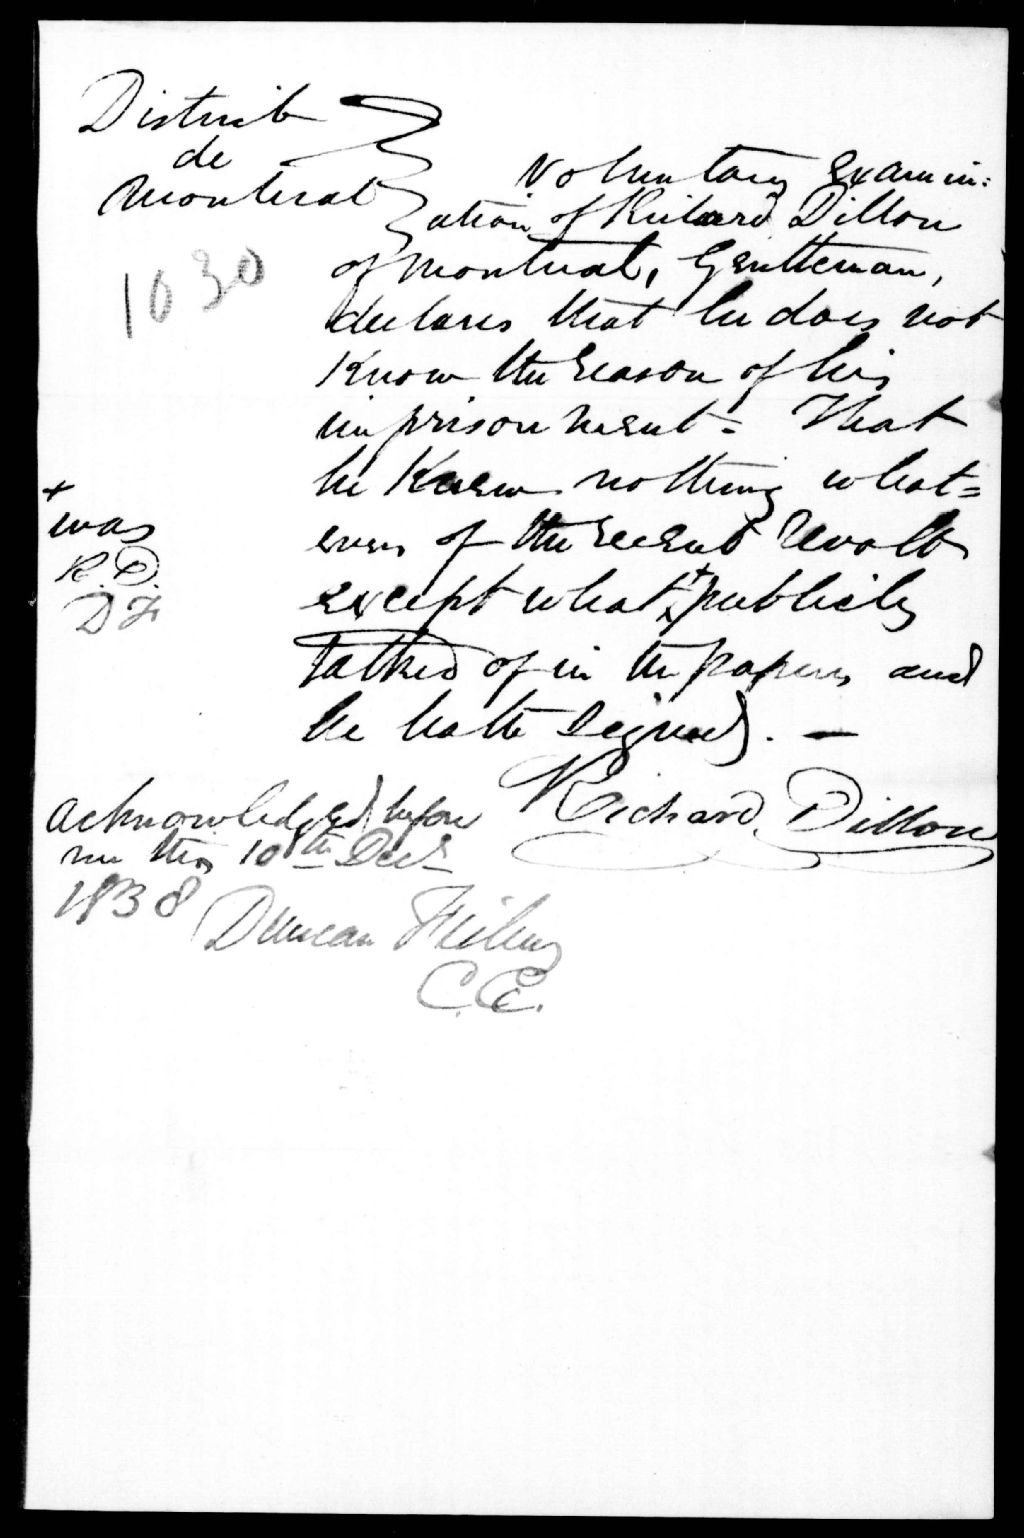 District
de
Montreal
1030
Voluntary Examin=
ation of Richard Dillon
of Montreal, Gentleman,
declares that he does not
Know the reason of his
imprisonment = That
he Knew nothing what=
ever of the recent Revolt
except what + publicly
talked of in the papers and
he hath signed. —
+
was
R. D.
D F
Richard Dillon
Acknowledged before
me this 10th Decr
1838
Duncan